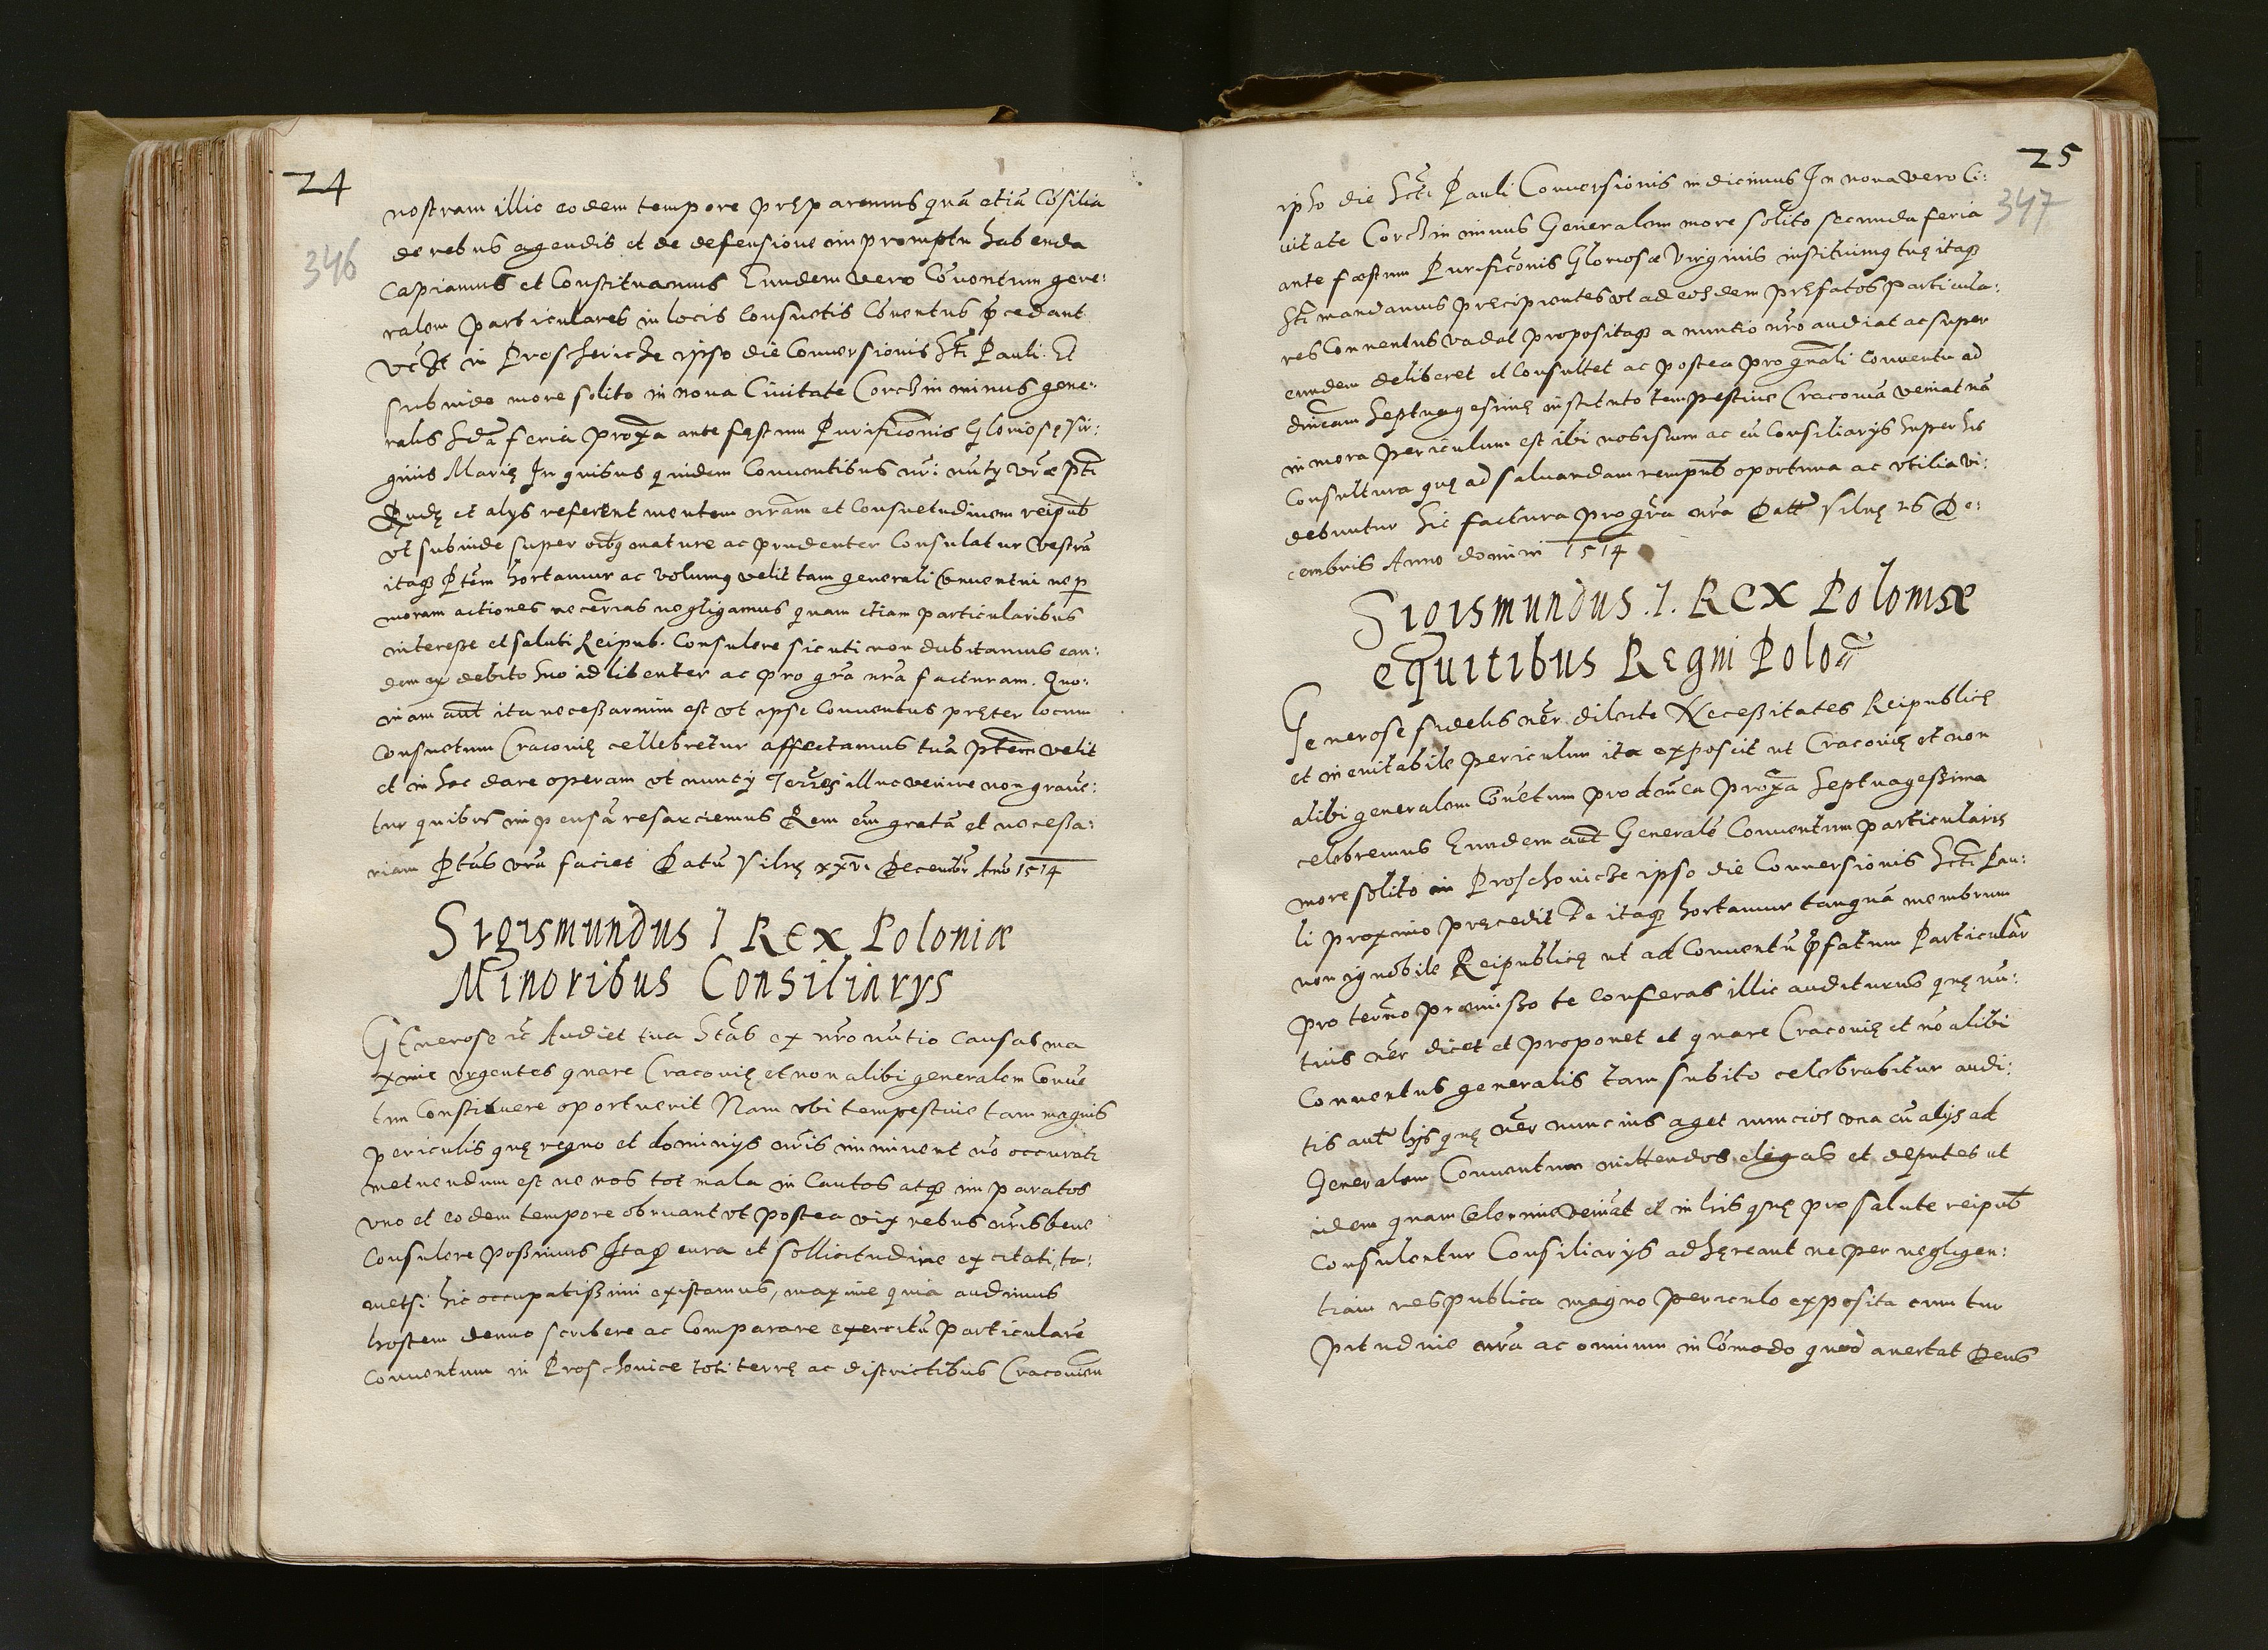 24
346
nostram illic eodem tempore pręparemus quā etiā Cōsilia
de rebus agendis et de defensione impromptu habenda
Capiamus et Constituamus Eundem vero Cōventum gene:
ralem particulares in locis consuetis Cōventus p̄cedant
vcȝt in Proscheriche ipso die Conversionis Scti Pauli. Et
subinde more solito in nova Civitate Corchin minus gene:
ralis Scda feria proxa ante fęstum Purificōnis Gloriosę Vir:
ginis Marię In quibus quidem Conventibus nri nūty vrae pti
et alys referent mentem nram et Consuetudinem reipub
vt subinde super oībq mature ac prudenter Consulatur Vestra
itaqȝ Ptem hortamur ac volumq velit tam generali Conventui ne p
moram actiones necerias negligamus quam etiam particularibus
interesse et saluti Reipub. Consulere sicuti non dubitamus ean:
dem ex debito suo id libenter ac pro gra nra facturam. Quo:
niam aut ita necessarium est vt ipse Conventus pręter locum
Consuetum Cracovię cellebretur affectamus tua ptem velit
et in hoc dare operam vt nuncy Terres illuc venire non grave:
tur quibus impensā resarciemus Rem em gratā et necessa:
riam Ptas vra faciet Datū Vilnę xxvi Decembr Ano 1514
Sigismundus 1 REX Poloniæ
Minoribus Consiliarys
GEnerose ic Audiet tua Stās ex nro nūtio Causas ma
xime vrgentes quare Cracovię et non alibi generalem Convē
tum Constituere oportuerit Nam vbi tempestive tam magnis
periculis quę regno et dominys nris imminent nō occurati
metuendum est ne nos tot mala in Cautos atqȝ imparatos
vno et eodem tempore obruant vt postea vix rebus nris bene
Consulere possimus Itaqȝ cura et sollicitudine excitati, ta:
metsi hic occupatissimi existamus, maxime quia audimus
hostem denuo scribere ac Comparare exercitū particularē
Conventum in Proschovice toti terrę ac districtibus Cracovien
25
347
ipso die Scti Pauli Conversionis indicimus In nova vero Ci:
vitate Corchin minus Generalem more solito secunda feria
ante fæstum Purificōnis Gloriosæ Virginis instituimq tuę itaqȝ
Sti mandamus pręcipientes vt ad eosdem pręfatos particula:
res Conventus vadat propositaqȝ a nuntio nro audiat ac super
eundem deliberet et Consultet ac postea pro gnali Conventu ad
dincam Septuagesimę instituto tempestive Cracoviā veniat nā
in mora periculum est ibi nobiscum ac cū Consiliarys super his
Consultura quę ad salvandam rempub oportuna ac vtilia vi:
debuntur Sic factura pro gra nra Datt Vilnę 26 De:
cembris Anno domini 1514
Sigismundus .1. REX Poloniæ
equitibus Regni Polo
Generose fidelis ner dilecte Necessitates Reipublicę
et inevitabile periculum ita exposcit ut Cracovię et non
alibi generalem Cōvetum pro dinca proxa Septuagessima
celebremus Eundem aut Generalē Conventum particularis
more solito in Proschovicze ipso die Conversionis Scti Pau:
li proximo pręcedit Te itaqȝ hortamur tanquā membrum
non ignobile Reipublicę ut ad Conventū p̄fatum Particular
pro termo præmisso te conferas illic auditurus quę nū:
tius ner dicet et proponet et quare Cracovię et nō alibi
Conventus generalis tam subito celebrabitur audi:
tis aut hys quę ner nuncius aget nuncios vna cū alys ad
Generalem Conventum mittendos eligas et deputes ut
idem quam celerrime veniāt et in his quę pro salute reipub
Consulentur Consiliarys adhęreant ne per negligen:
tiam respublica magno periculo exposita cum tur
pitudine nra ac omnium incōmodo quod avertat Deus